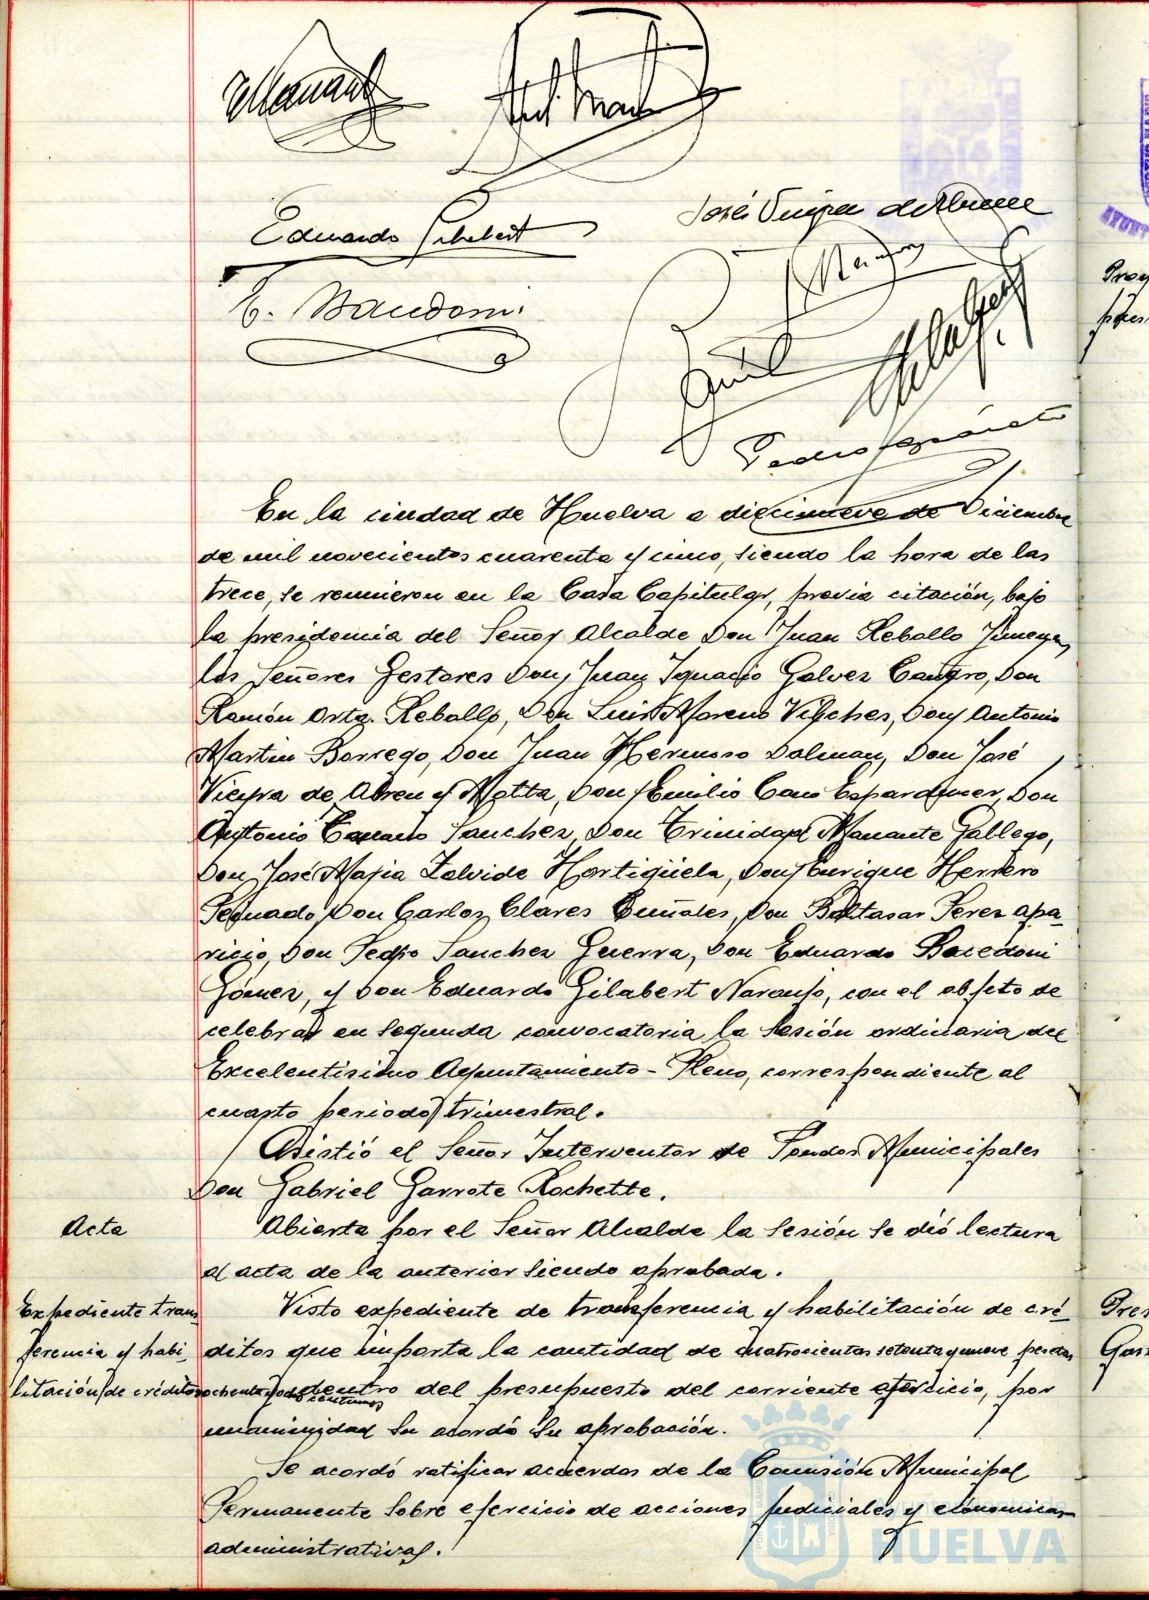 Eduardo Gilabert
José Vieyra de Abreu
E. Bacedoni
En la ciudad de Huelva a diecinueve de Diciembre
de mil novecientos cuarenta y cinco, siendo la hora de las
trece, se reunieron en la Casa Capitular, previa citación, bajo
la presidencia del Señor Alcalde Don Juan Rebollo Jimenez,
los Señores Gestores Don Juan Ignacio Galvez Cañero, Don
Ramón Orta Rebollo, Don Luis Moreno Vilches, Don Antonio
Martin Borrego, Don Juan Hermoso Dolman, Don José
Vieyra de Abreu y Motta, Don Emilio Cano Don
Antonio Sanchez, Don Trinidad Manante Gallego,
Don José Maria Zalvide Hortigüela, Don Enrique Herrero
Don Carlos Clares Don Baltasar Perez Apa-
ricio, Don Pedro Sanchez Guerra, Don Eduardo Bacedoni
Gómez, y Don Eduardo Gilabert Naranjo, con el objeto de
celebrar en segunda convocatoria la sesión ordinaria del
Excelentísimo Ayuntamiento-Pleno, correspondiente al
cuarto periodo trimestral.
Asistió el Señor Interventor de Fondos Municipales
Don Gabriel Garrote Rochette.
Acta
Abierta por el Señor Alcalde la sesión se dió lectura
al acta de la anterior siendo aprobada.
Expediente trans
ferencia y habi-
litación de créditos
Visto expediente de transferencia y habilitación de cré-
ditos que importa la cantidad de cuatrocientas setenta y nueve pesetas
ochenta y dos centimos dentro del presupuesto del corriente ejercicio, por
unanimidad se acordó su aprobación.
Se acordó ratificar acuerdos de la Comisión Municipal
Permanente sobre ejercicio de acciones judiciales y económicas
administrativas.
HUELVA